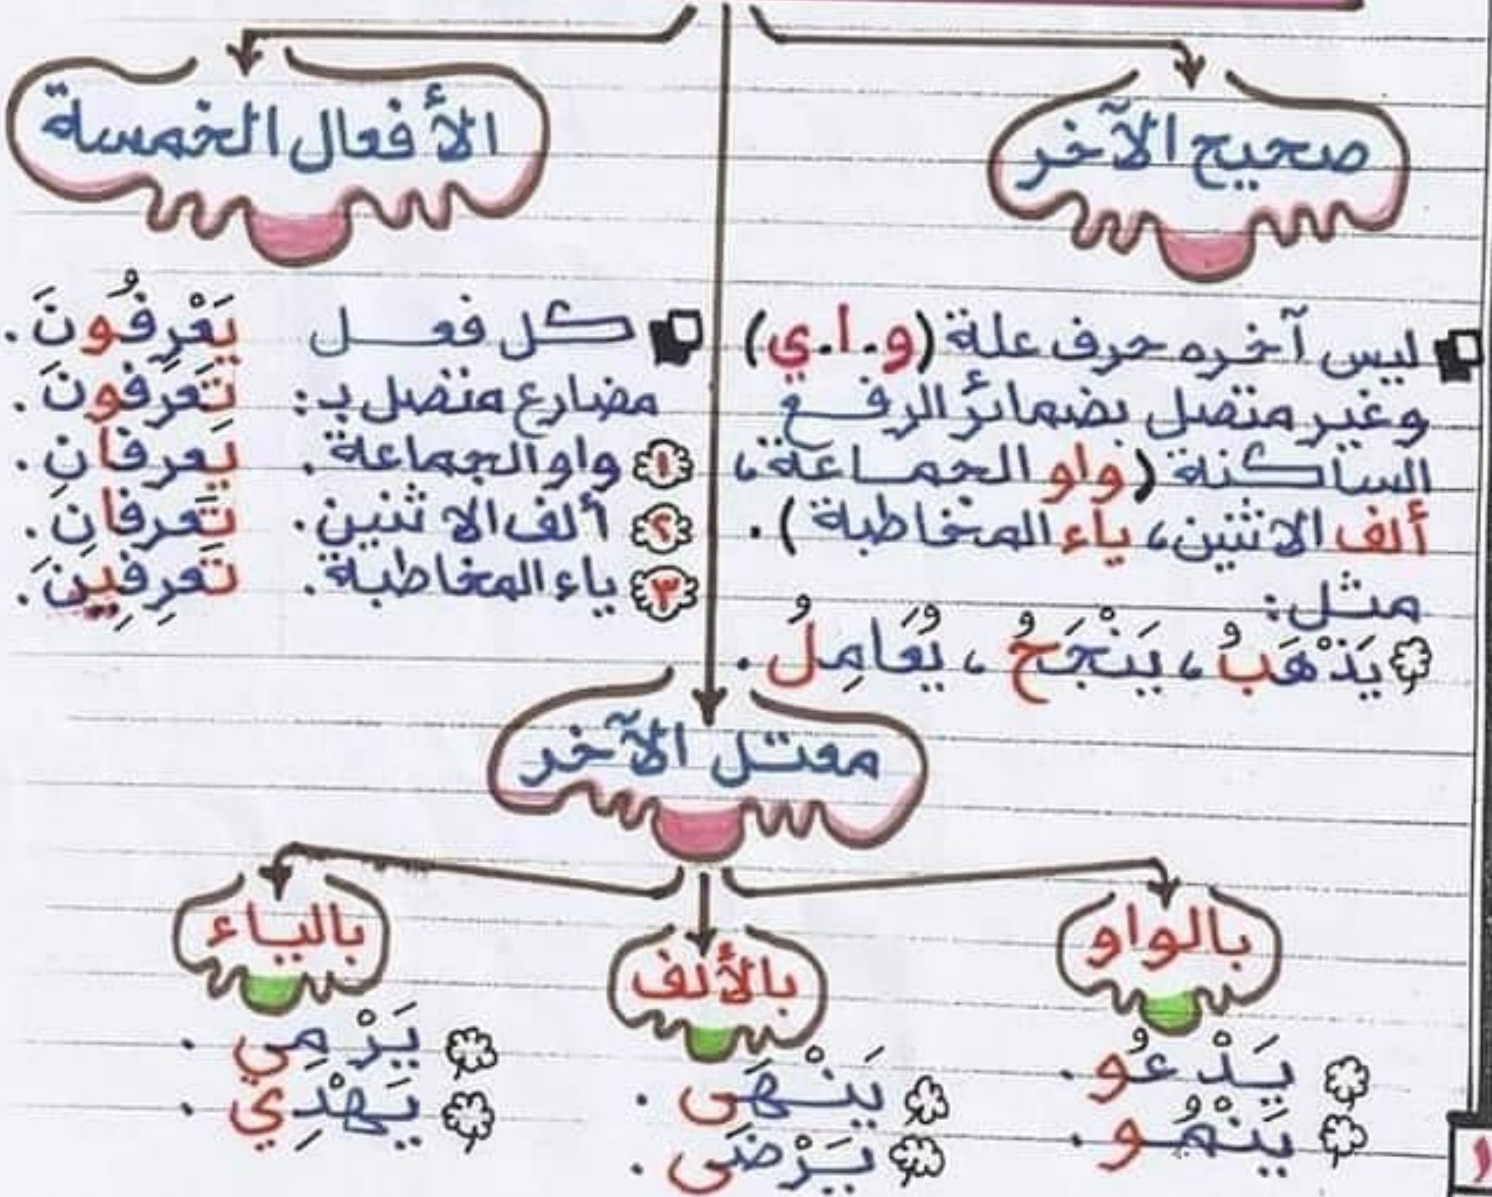 صحيح الآخر
ليس آخره حرف علة (و.ا.ي)
وغير متصل بضمائر الرفع
الساكنة (واو الجماعة،
ألف الاثنين، ياء المخاطبة).
مثل:
يَذْهَبُ، يَنْجَحُ، يُعَامِلُ.
الأفعال الخمسة
كل فعل
مضارع متصل بـ:
١ واو الجماعة.
٢ ألف الاثنين.
٣ ياء المخاطبة.
يَعْرِفُونَ.
تَعرِفونَ.
يَعرفانِ.
تَعرفانِ.
تَعرِفِينَ.
معتل الآخر
بالواو
يَدْعُو.
يَنْمُو.
بالألف
يَنْهَى.
يَرْضَى.
بالياء
يَرْمِي.
يَهْدِي.
١